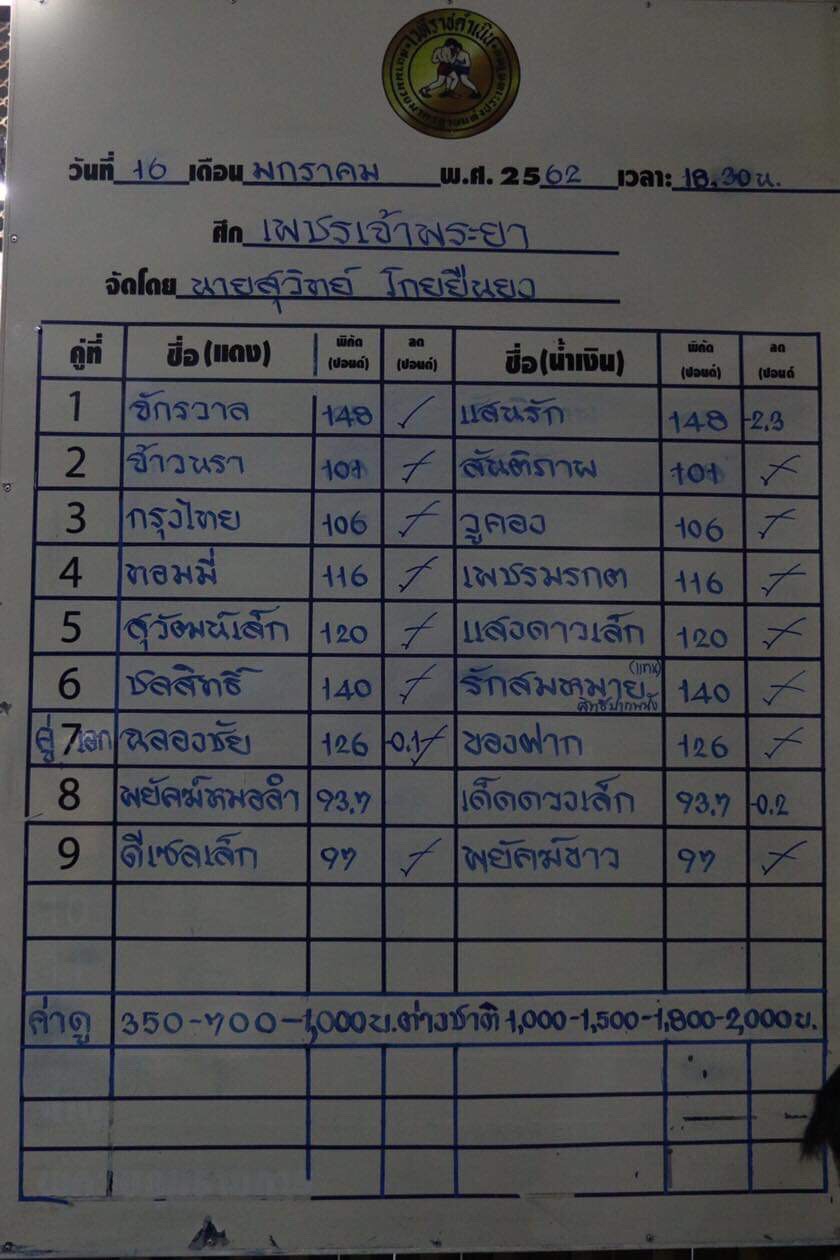 เวทีราชดำเนิน
วันที่ 16 เดือน มกราคม พ.ศ. 2562 เวลา: 18.30 น.
ศึก เพชรเจ้าพระยา
จัดโดย นายสุวิทย์ โกยยืนยง
คู่ที่ ชื่อ (แดง) พิกัด (ปอนด์) ลด (ปอนด์) ชื่อ (น้ำเงิน) พิกัด (ปอนด์) ลด (ปอนด์
1 จักรวาล 148 ✓ แสนรัก 148 -2.3
2 ข้าวนรา 101 ✓ สันติภาพ 101 ✓
3 กรุงไทย 106 ✓ วูคอง 106 ✓
4 ทอมมี่ 116 ✓ เพชรมรกต 116 ✓
5 สุวัฒน์เล็ก 120 ✓ แสงดาวเล็ก 120 ✓
(แทน)
6 ชลสิทธิ์ 140 ✓ รักสมหมาย 140 ✓
สิทธิปากพนัง
คู่ 7 เอก ฉลองชัย 126 -0.1 ✓ ของฝาก 126 ✓
8 พยัคฆ์หมอลำ 93.7 เด็ดดวงเล็ก 93.7 -0.2
9 ดีเซลเล็ก 97 ✓ พยัคฆ์ขาว 97 ✓
ค่าดู 350-700-1,000 บ. ต่างชาติ 1,000-1,500-1,800-2,000 บ.